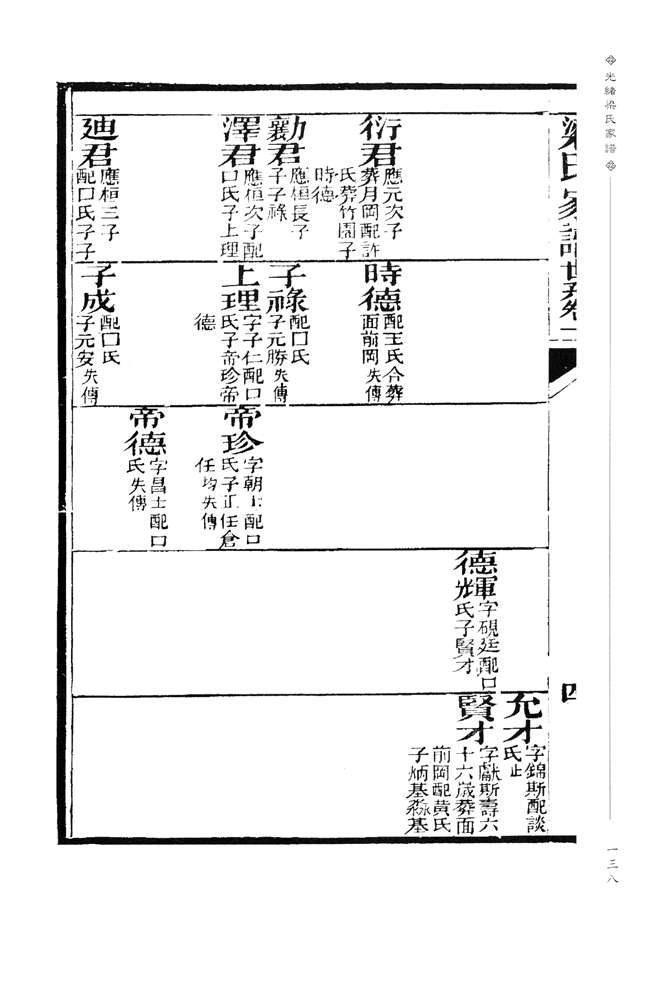 光緒梁氏家譜
一三八
梁氏家譜世系卷一
四
衍君
應元次子
葬月岡配許
氏葬竹園子
時德
勷君
應桓長子
子子祿
澤君
應桓次子配
口氏子上理
廸君
應桓三子
配口氏子子
時德
配王氏合葬
面前岡失傳
子祿
配口氏
子元勝失傳
上理
字子仁配口
氏子帝珍帝
德
子成
配口氏
子元安失傳
帝珍
字朝士配口
氏子正任倉
任均失傳
帝德
字昌士配口
氏失傳
德輝
字硯廷配口
氏子賢才
允才
字錦斯配談
氏止
賢才
字獻斯壽六
十六歲葬面
前岡配黃氏
子炳基淼基